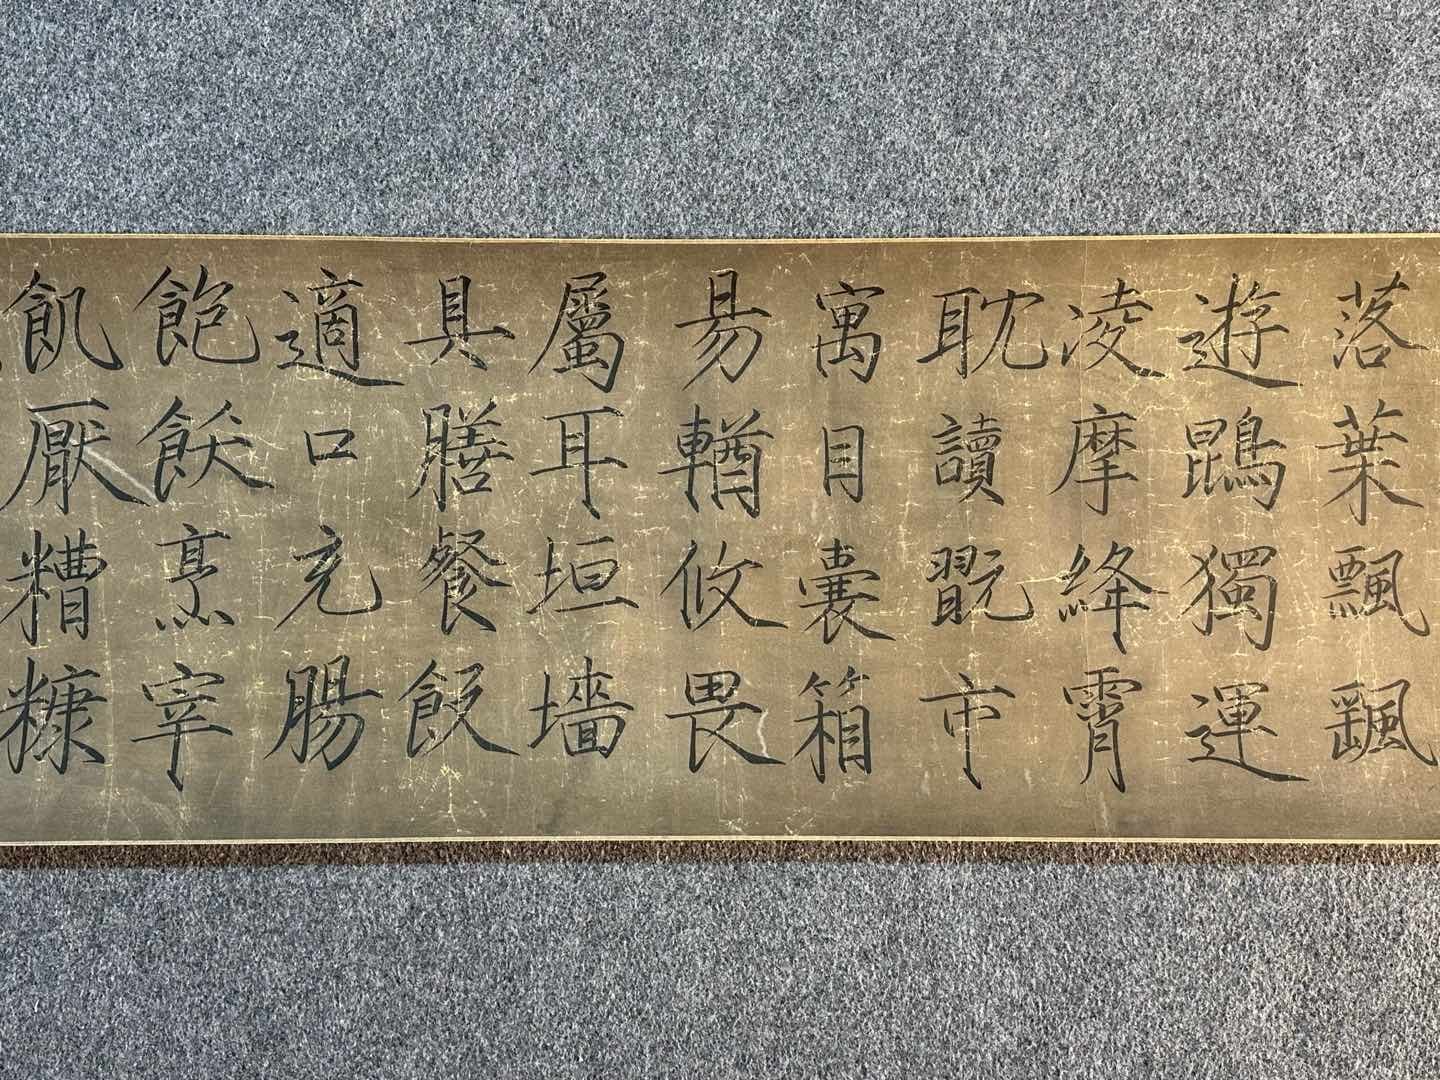 落葉飄颻
遊鵾獨運
凌摩絳霄
耽讀翫市
寓目囊箱
易輶攸畏
屬耳垣墻
具膳餐飯
適口充腸
飽飫烹宰
飢厭糟糠